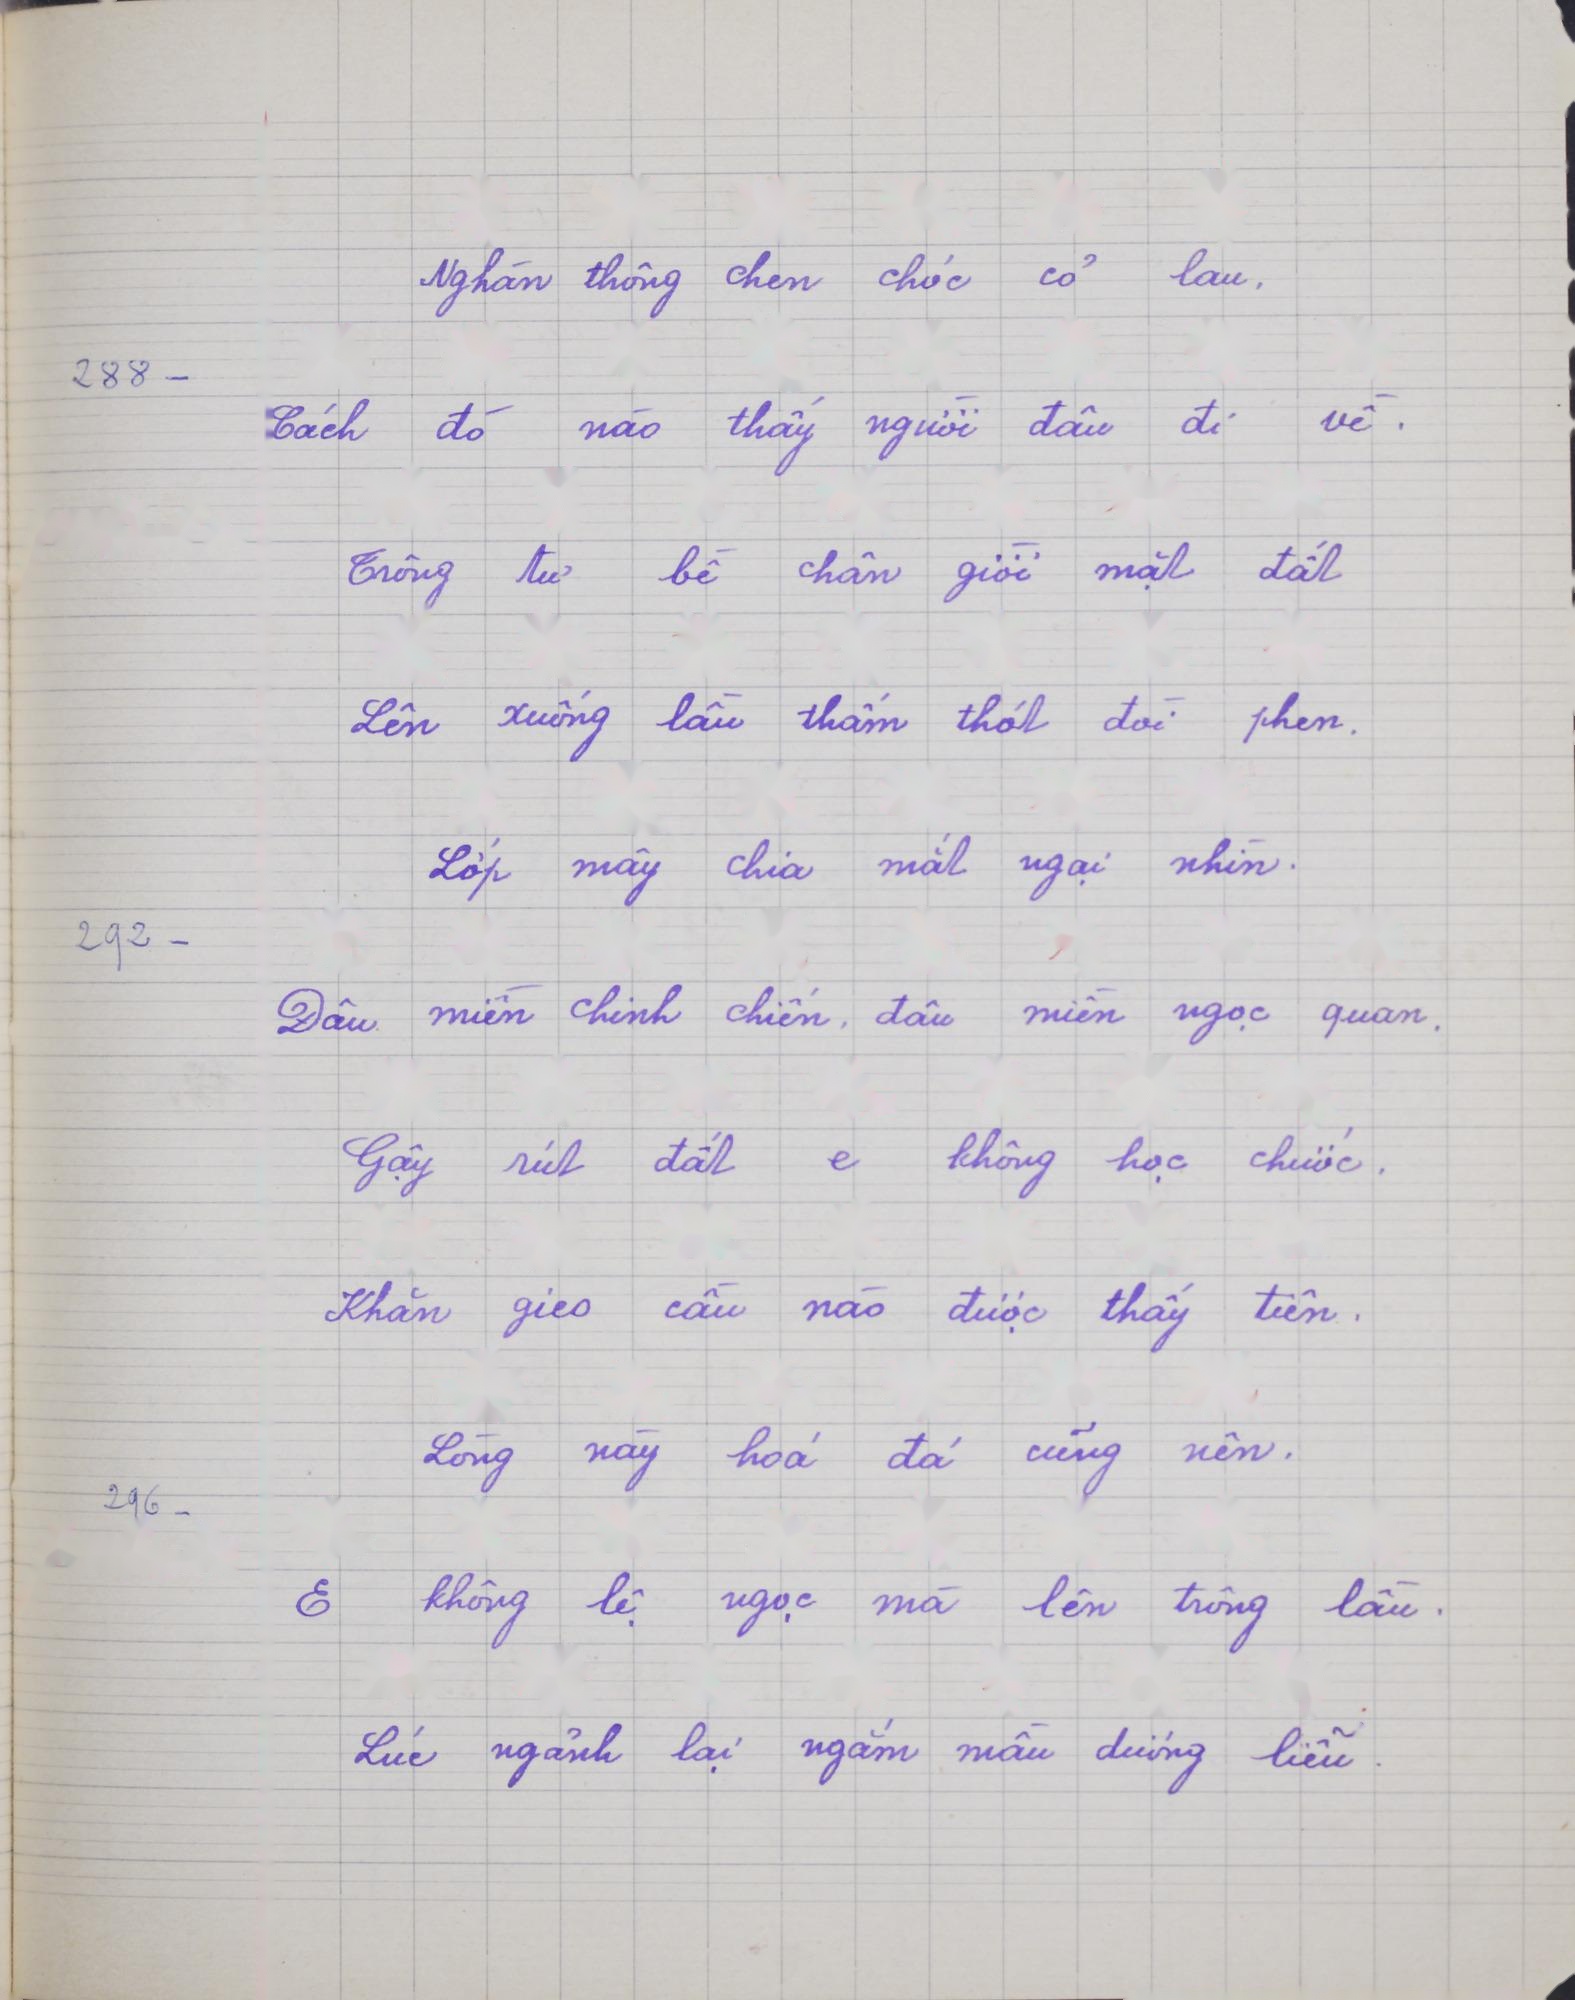 Nghàn thông chen chóc cỏ lau.
288 -
Cách đò nào thấy người đâu đi về.
Trông tư bề chân giời mặt đất
Lên xuống lầu thấm thót đòi phen.
Lớp mây chia mắt ngại nhìn.
292 -
Đâu miền chinh chiến, đâu miền ngọc quan.
Gậy rút đất e không học chước.
Khăn gieo cầu nào được thấy tiên.
Lòng này hoá đá cũng nên.
296 -
E không lệ ngọc mà lên trông lầu.
Lúc ngảnh lại ngắm mầu dương liễu.